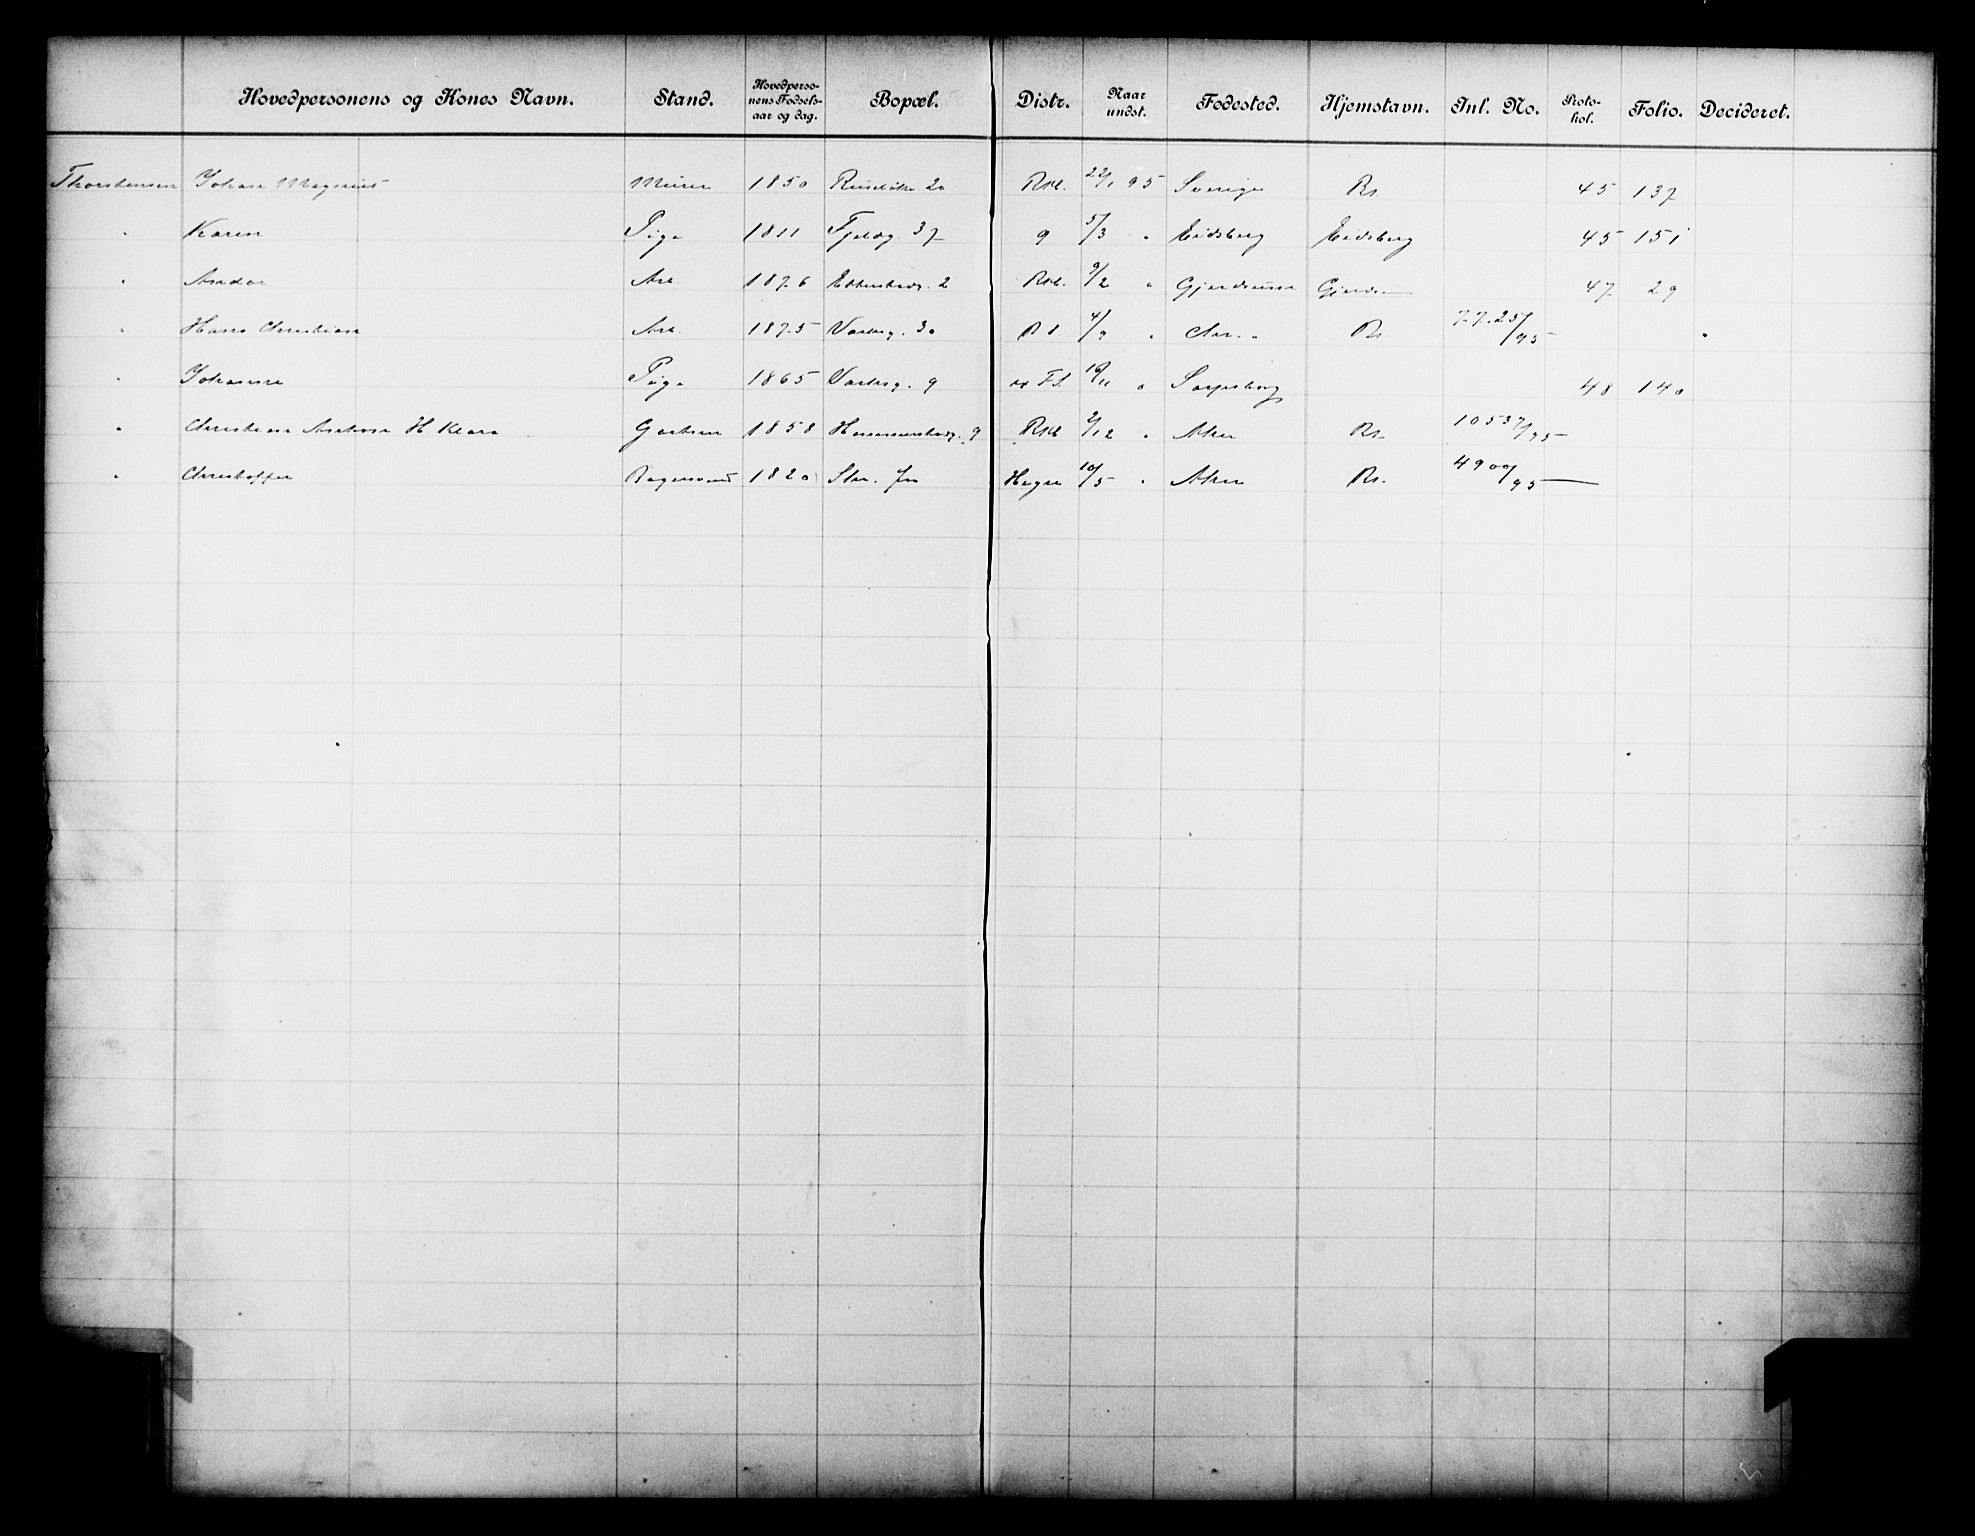 Hovedpersonens og Kones Navn. Stand. Hovedpersonens Fødselsaar og dag. Bopæl. Distr. Naar undst. Fødested. Hjemstavn. Inl. No. Protokol. Folio. Decideret.
Thorstensen Johan Magnus Murer 1850 Ruseløkv 20 Rkl. 22/1 95 Sverige Kr. 45 137
" Karen Pige 1811 Fjeldg. 37 9 5/3 " Eidsberg Eidsberg 45 151
" Andor Arb. 1876 Ekkersbergg. 2 Rkl. 9/2 " Gjerdrum Gjerdrum 47 29
" Hans Christian Arb. 1875 Vaalerg. 30 4/9 " Kr. 7725/95 "
" Johanne Pige 1865 Vaalerg. 9 " Sarpsborg 48 140
" Christian Anton H Klara Gartner 1858 Hammersborgg. 9 Rkl 2/12 " Aker Kr. 10537/95
" Christoffer Bogersvend 1820 10/5 " Aker Kr. 4900/95